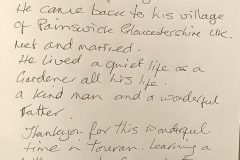 He came back to his village
of Painswick Gloucestershire UK.
Met and married.
He lived a quiet life as a
Gardener all his life.
a kind man and a wonderful
father.
Thankyou for this wonderful
time in Towran. Learning a